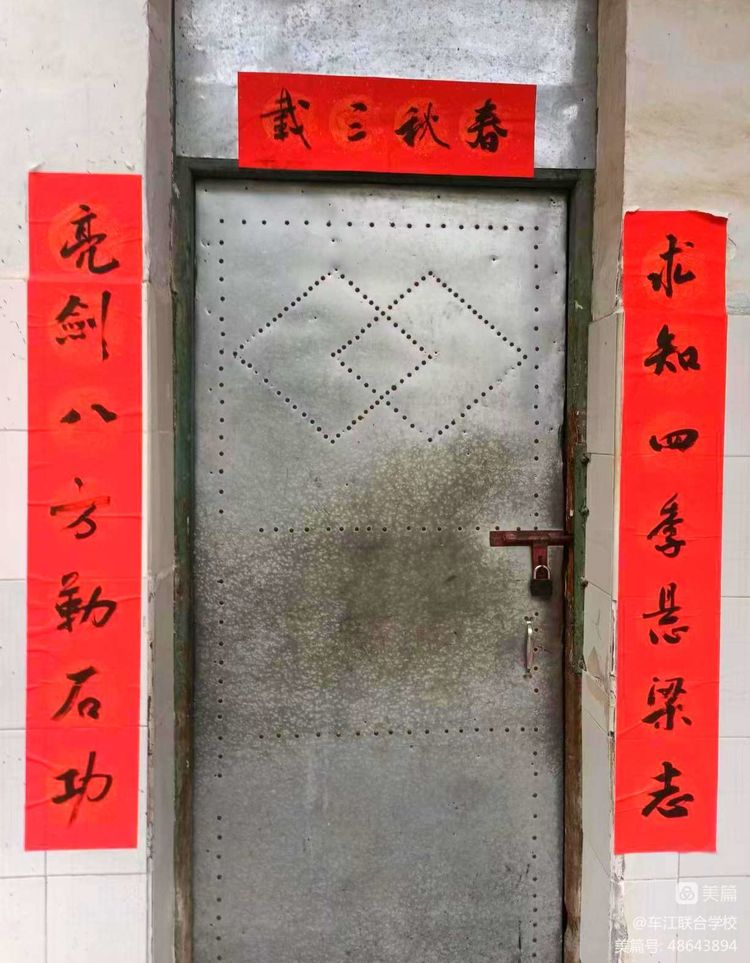 春秋三载
求知四季悬梁志
亮劍八方勒石功
美篇
@车江联合学校
美篇号: 48643894